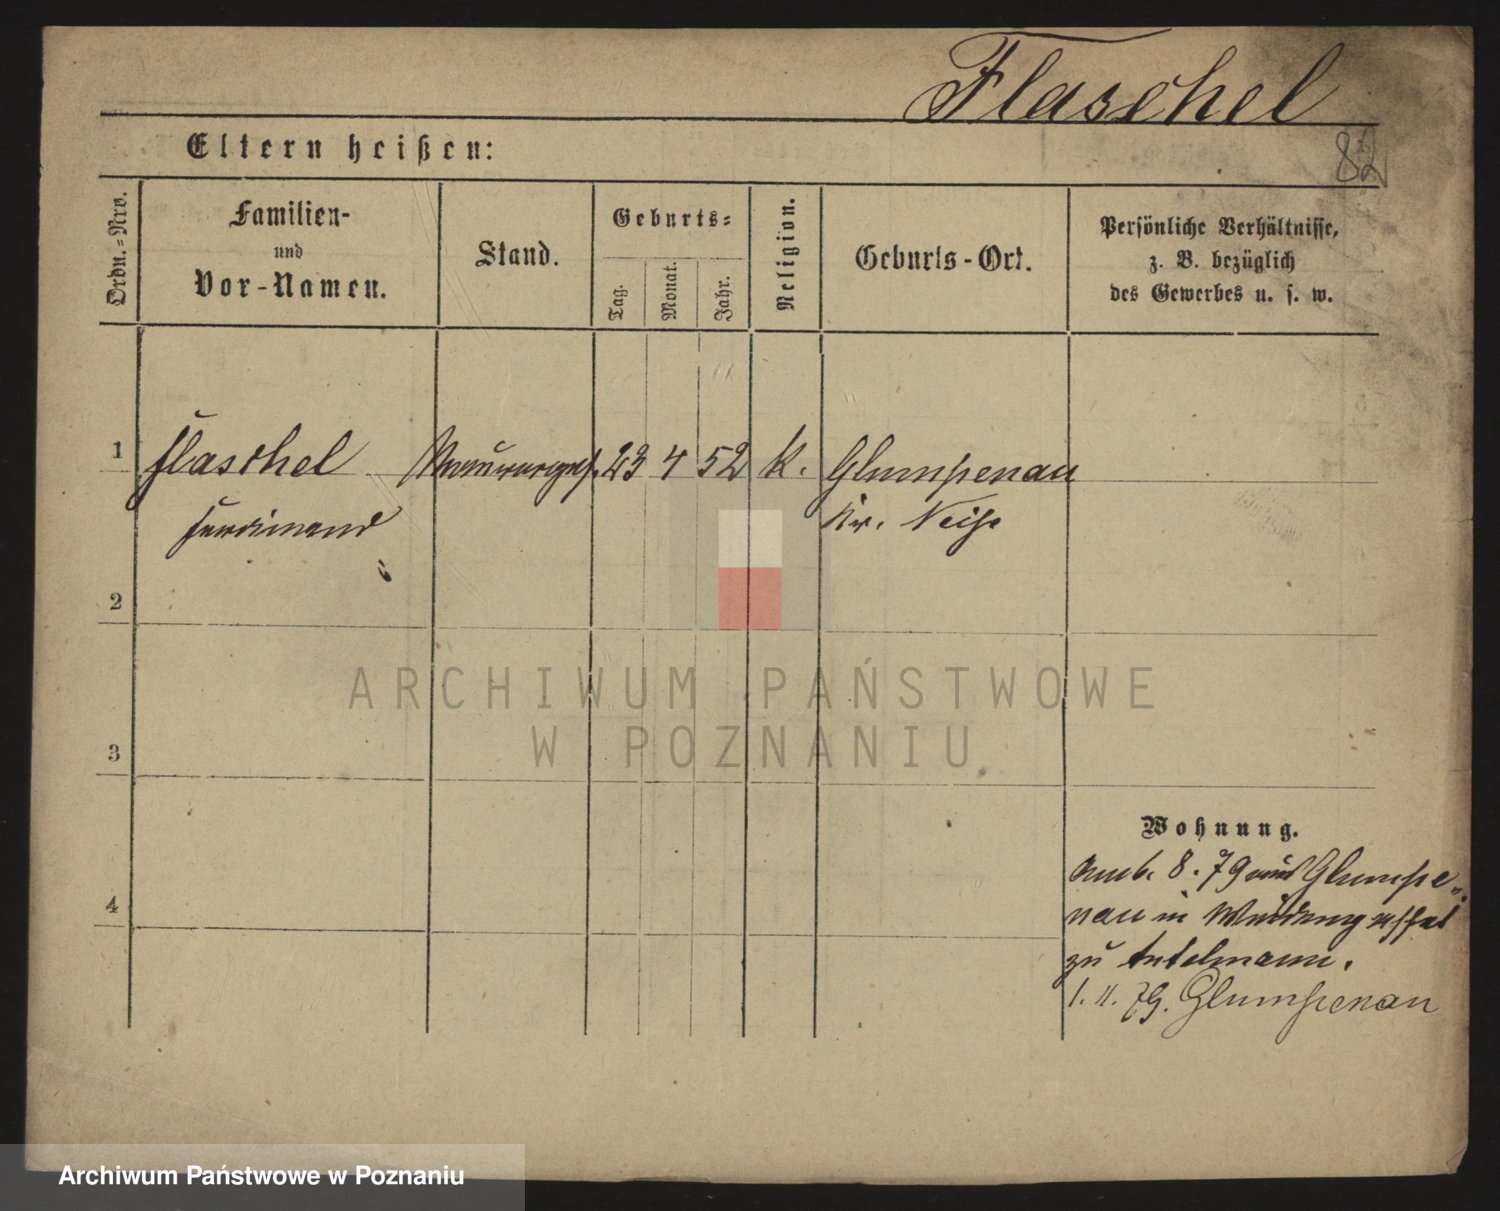 Flaschel
82
Eltern heißen:
Ordn.=Nro.
Familien-
und
Vor-Namen.
Stand.
Geburts=
Tag.
Monat.
Jahr.
Religion.
Geburts-Ort.
Persönliche Verhältnisse,
z. B. bezüglich
des Gewerbes u. s. w.
1 Flaschel Maurergesl. 23 4 52 k. Glumpenau
Ferdinand Kr. Neiße
2
3
4
Wohnung.
8. 79 aus Glumpe-
nau in
zu
1. 11. 79. Glumpenau
ARCHIWUM PAŃSTWOWE
W POZNANIU
Archiwum Państwowe w Poznaniu